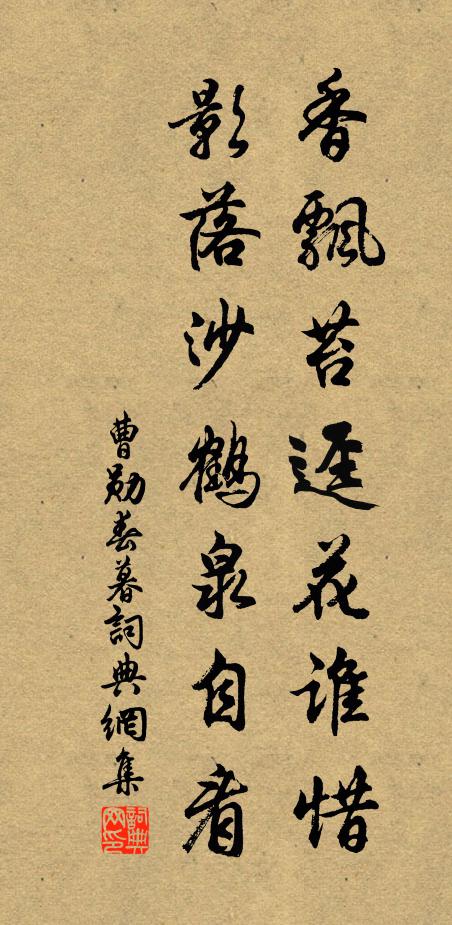 香飄苔逕花誰惜
影落沙鶴泉自看
曹勛春暮詞典網集
詞典網印